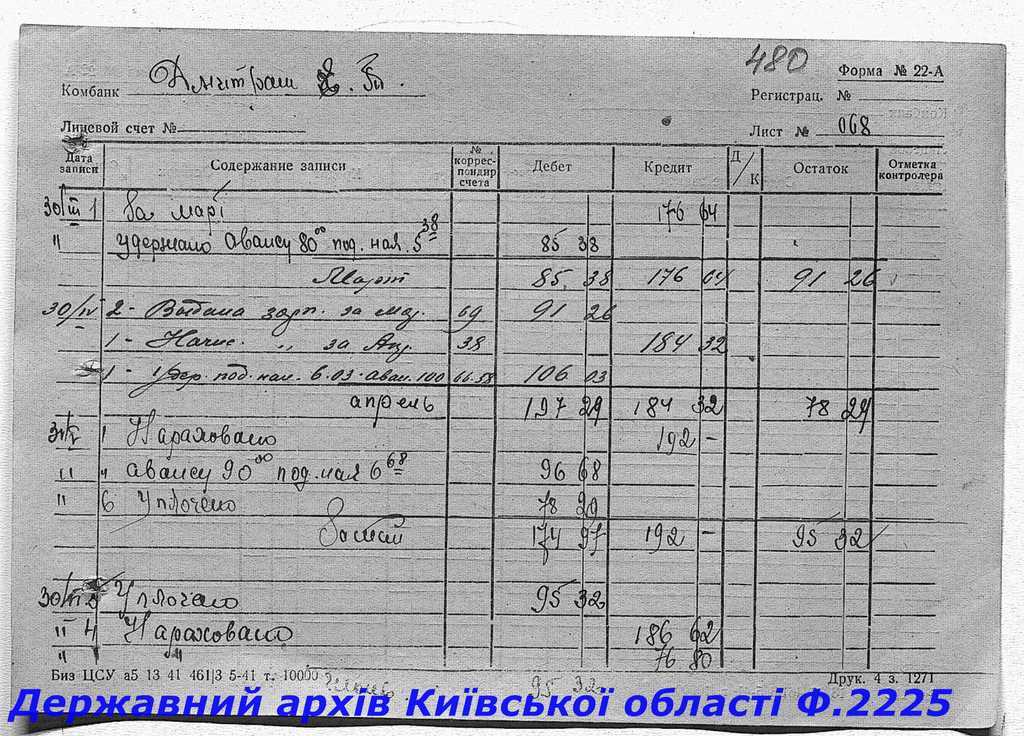 480
Форма № 22-А
Комбанк Дмитраш Є. П.
Регистрац. №
Лицевой счет №
Лист № 068
Дата записи Содержание записи № корреспондир счета Дебет Кредит Д/К Остаток Отметка контролера
30/III 1 За марі 176 64
" удержано авансу 80 00 под. нал. 5 38 85 38
Март 85 38 176 64 91 26
30/IV 2 - Выдана зарп. за мар. 69 91 26
1 - Начис. " за Апр. 38 184 32
1 - Удер. под. нал. 6.03 - аван. 100 66-58 106 03
апрель 197 29 184 32 78 29
31/V 1 Нараховано 192 -
" " авансу 90 00 под. нал 6 68 96 68
" 6 Уплочено 78 29
За май 174 97 192 - 95 32
30/VI 6 Уплочено 95 32
" 4 Нараховано 186 62
" " 76 80
Биз ЦСУ а5 13 41 461|3 5-41 т. 10000
95 32
Друк. 4 з. 1271
Державний архів Київської області Ф.2225